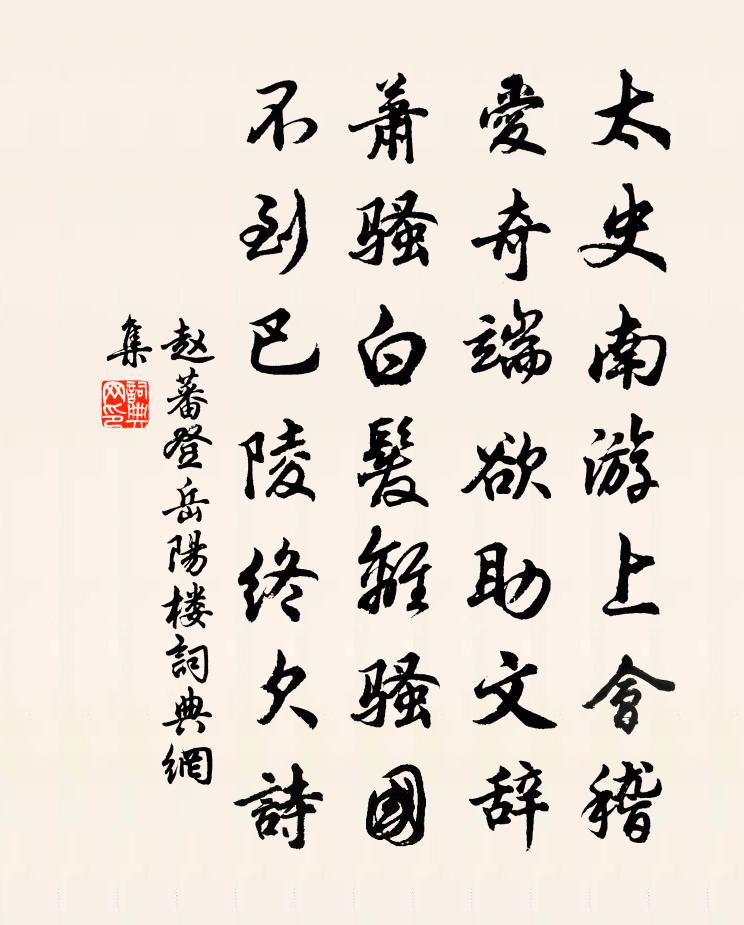 太史南游上會稽
愛奇端欲助文辞
蕭骚白髮離骚國
不到巴陵終欠詩
赵蕃登岳陽楼詞典網
集
詞典
网印